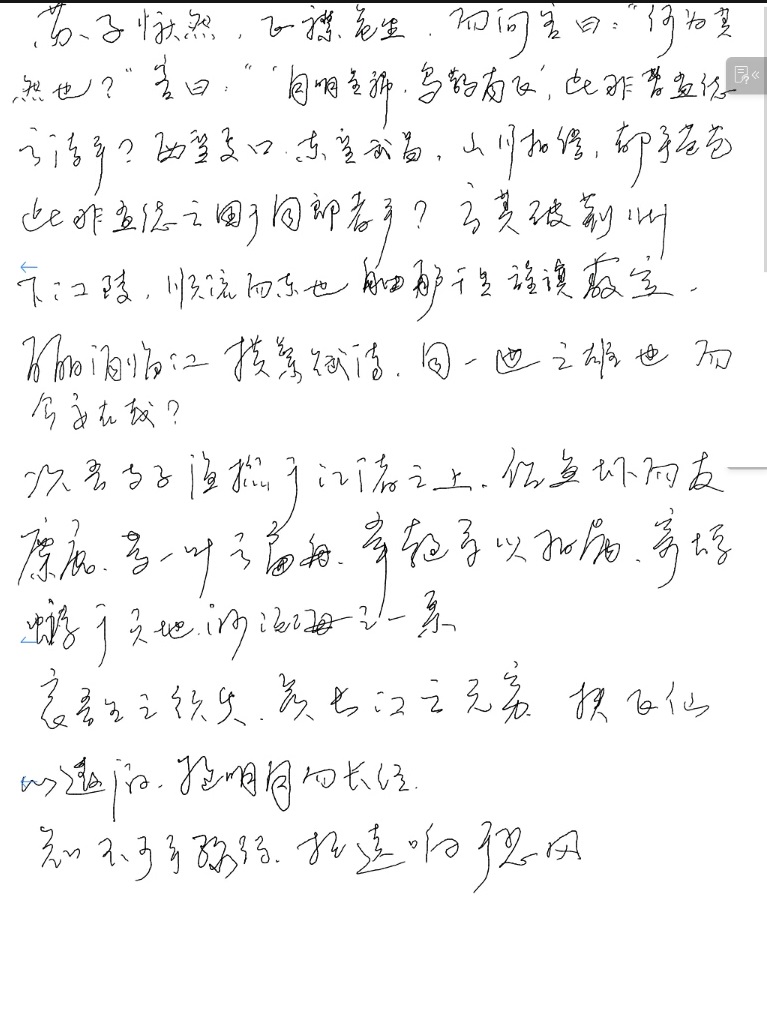 苏子愀然,正襟危坐,而问客曰:“何为其
然也?”客曰:“‘月明星稀,乌鹊南飞’,此非曹孟德
之诗乎?西望夏口,东望武昌,山川相缪,郁乎苍苍
此非孟德之困于周郎者乎?方其破荆州
下江陵,顺流而东也 舳舻千里 旌旗蔽空,
酾酒临江 横槊赋诗,固一世之雄也 而
今安在哉?
况吾与子渔樵于江渚之上,侣鱼虾而友
麋鹿,驾一叶之扁舟,举匏尊以相属,寄蜉
蝣于天地,渺沧海之一粟
哀吾生之须臾,羡长江之无穷 挟飞仙
以遨游,抱明月而长终.
知不可乎骤得,托遗响于悲风